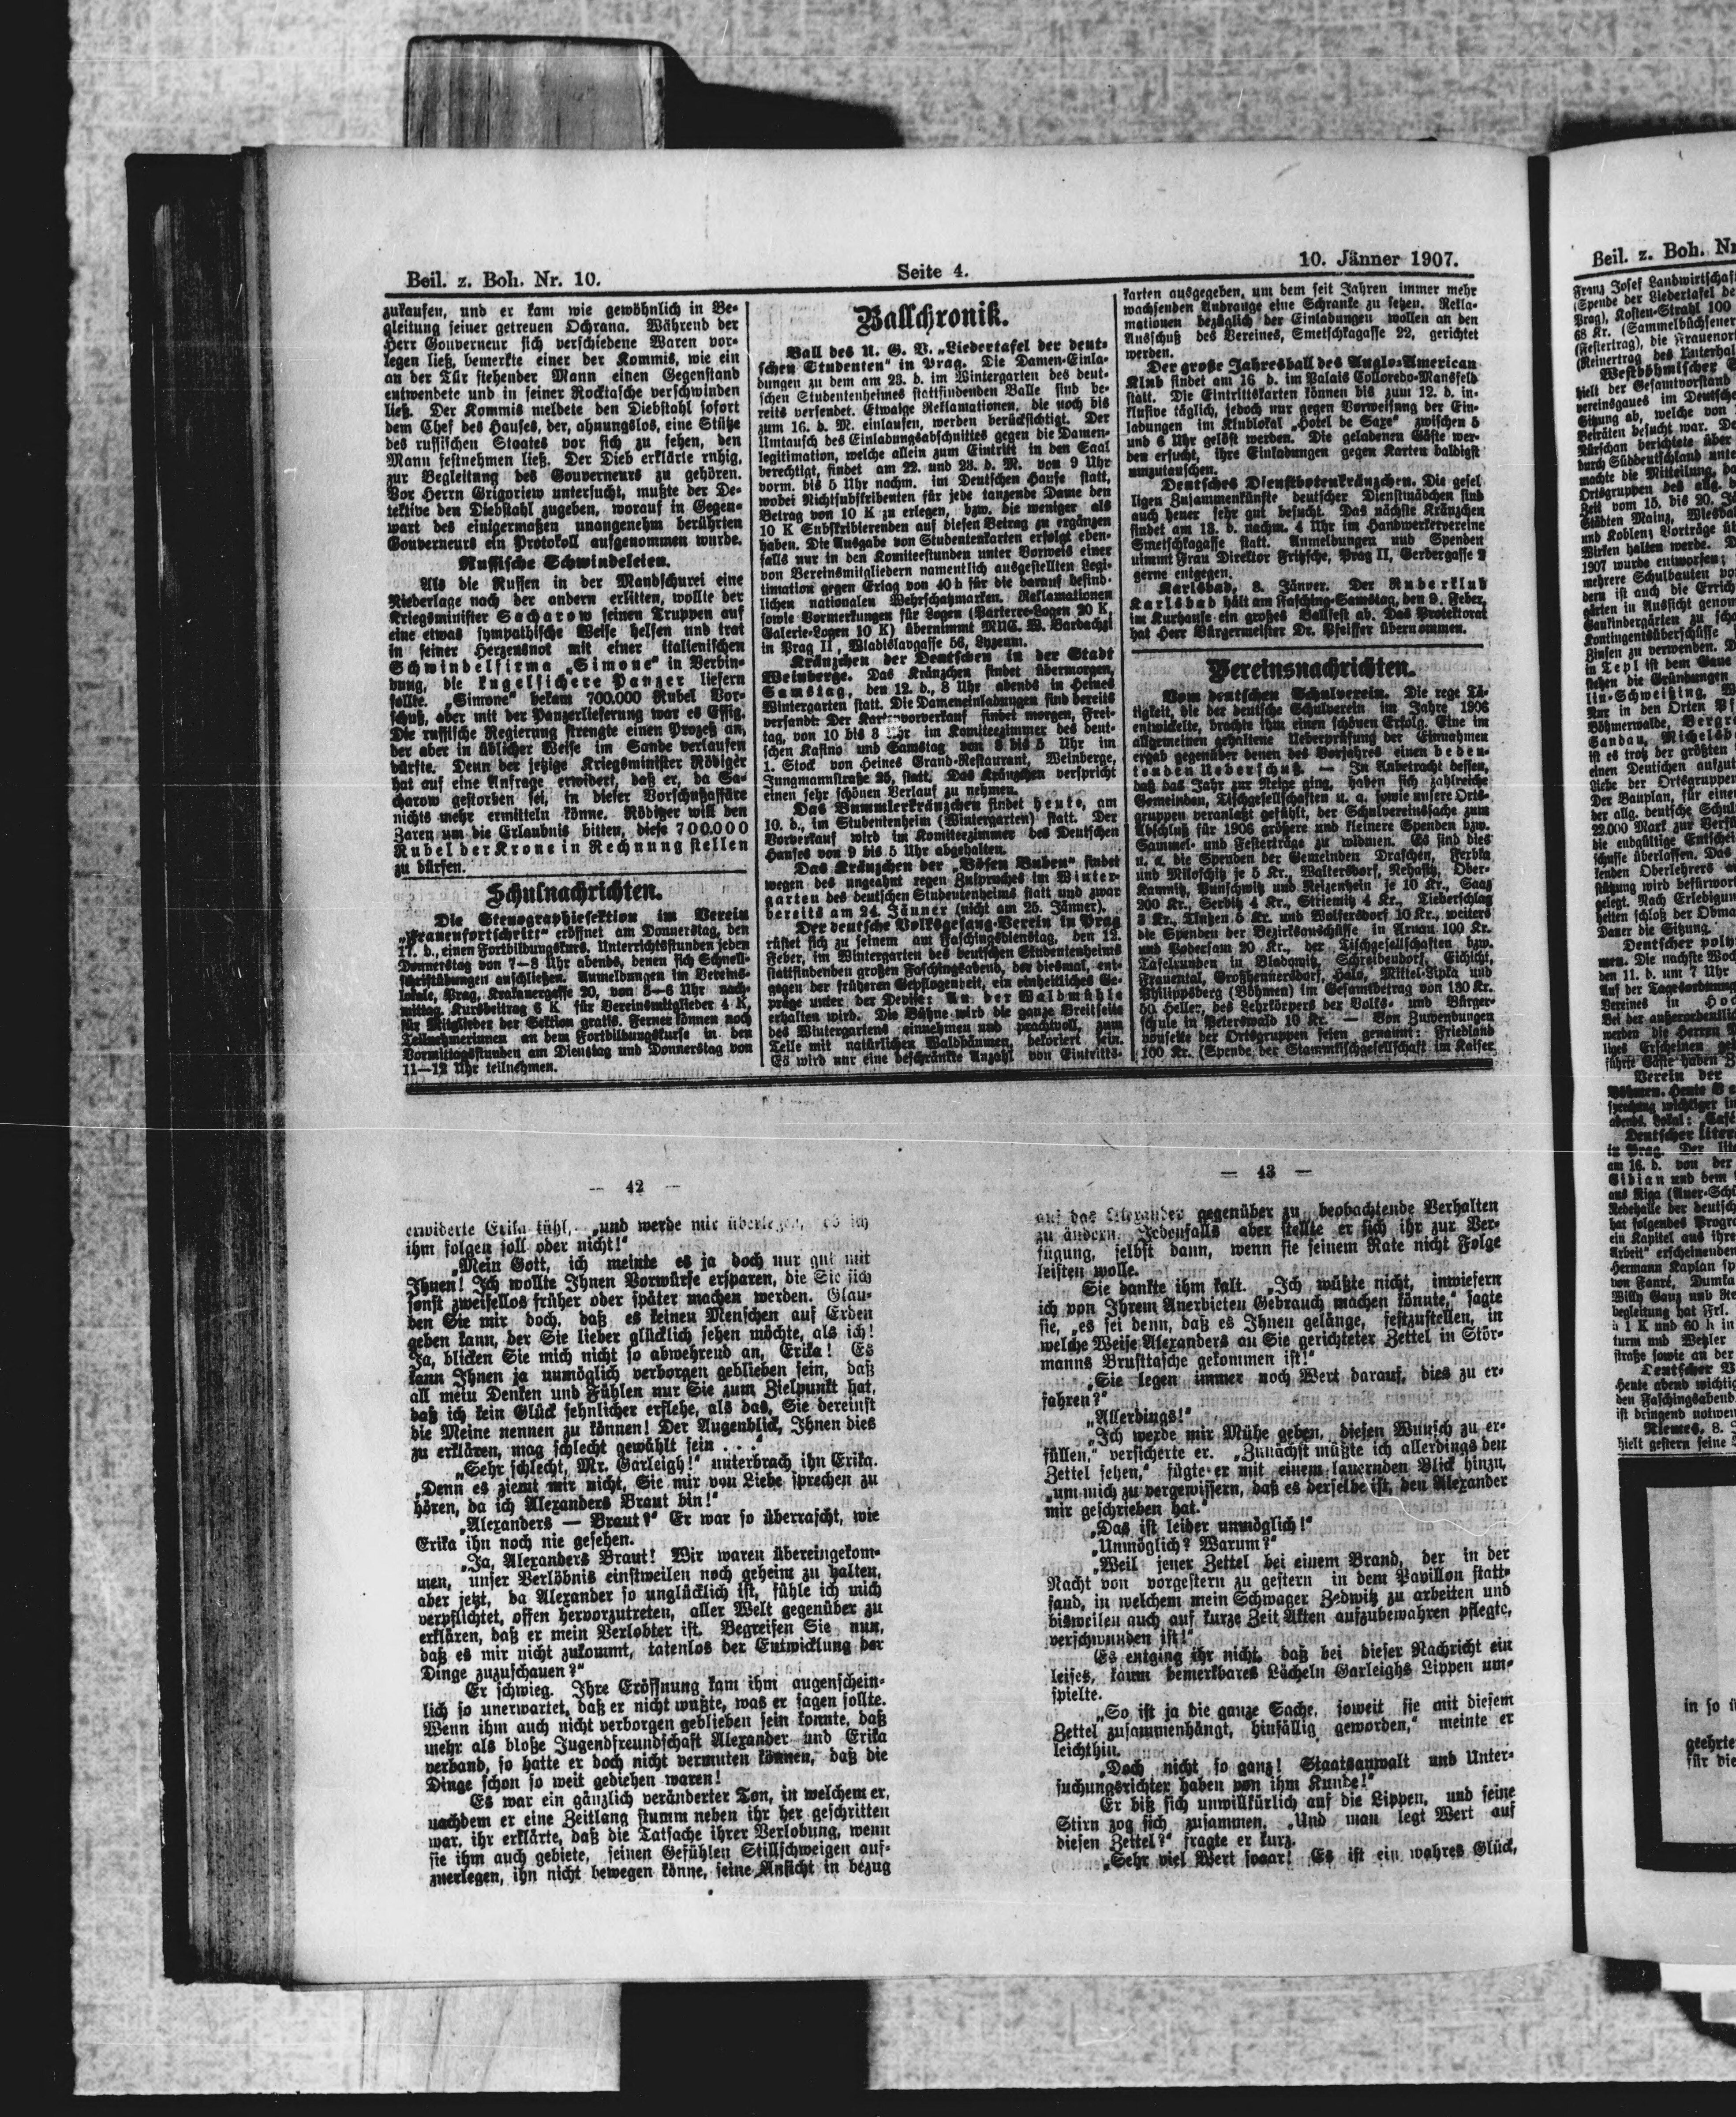 Beil. z. Boh. Nr. 10.
Seite 4.
10. Jänner 1907.
zukaufen, und er kam wie gewöhnlich in Be-
gleitung seiner getreuen Ochrana. Während der
Herr Gouverneur sich verschiedene Waren vor-
legen ließ, bemerkte einer der Kommis, wie ein
an der Tür stehender Mann einen Gegenstand
entwendete und in seiner Rocktasche verschwinden
ließ. Der Kommis meldete den Diebstahl sofort
dem Chef des Hauses, der, ahnungslos, eine Stütze
des russischen Staates vor sich zu sehen, den
Mann festnehmen ließ. Der Dieb erklärte ruhig,
zur Begleitung des Gouverneurs zu gehören.
Vor Herrn Grigoriew untersucht, mußte der De-
tektive den Diebstahl zugeben, worauf in Gegen-
wart des einigermaßen unangenehm berührten
Gouverneurs ein Protokoll aufgenommen wurde.
Russische Schwindeleien.
Als die Russen in der Mandschurei eine
Niederlage nach der andern erlitten, wollte der
Kriegsminister Sacharow seinen Truppen auf
eine etwas sympathische Weise helfen und trat
in seiner Herzensnot mit einer italienischen
Schwindelfirma „Simone" in Verbin-
dung, die kugelsichere Panzer liefern
sollte. „Simone" bekam 700.000 Rubel Vor-
schuß, aber mit der Panzerlieferung war es Essig.
Die russische Regierung strengte einen Prozeß an,
der aber in üblicher Weise im Sande verlaufen
dürfte. Denn der jetzige Kriegsminister Rödiger
hat auf eine Anfrage erwidert, daß er, da Sa-
charow gestorben sei, in dieser Vorschußaffäre
nichts mehr ermitteln könne. Rödiger will den
Zaren um die Erlaubnis bitten, diese 700.000
Rubel der Krone in Rechnung stellen
zu dürfen.
Schulnachrichten.
Die Stenographiesektion im Verein
„Frauenfortschritt" eröffnet am Donnerstag, den
17. d., einen Fortbildungskurs. Unterrichtsstunden jeden
Donnerstag von 7—8 Uhr abends, denen sich Schnell-
schriftübungen anschließen. Anmeldungen im Vereins-
lokale, Prag, Krakauergasse 20, von 3—6 Uhr nach-
mittag. Kursbeitrag 6 K für Vereinsmitglieder 4 K,
für Mitglieder der Sektion gratis. Ferner können noch
Teilnehmerinnen an dem Fortbildungskurse in den
Vormittagsstunden am Dienstag und Donnerstag von
11—12 Uhr teilnehmen.
Ballchronik.
Ball des U. G. V. „Liedertafel der deut-
schen Studenten" in Prag. Die Damen-Einla-
dungen zu dem am 23. d. im Wintergarten des deut-
schen Studentenheimes stattfindenden Balle sind be-
reits versendet. Etwaige Reklamationen, die noch bis
zum 16. d. M. einlaufen, werden berücksichtigt. Der
Umtausch des Einladungsabschnittes gegen die Damen-
legitimation, welche allein zum Eintritt in den Saal
berechtigt, findet am 22. und 23. d. M. von 9 Uhr
vorm. bis 5 Uhr nachm. im Deutschen Hause statt,
wobei Nichtsubskribenten für jede tanzende Dame den
Betrag von 10 K zu erlegen, bzw. die weniger als
10 K Subskribierenden auf diesen Betrag zu ergänzen
haben. Die Ausgabe von Studentenkarten erfolgt eben-
falls nur in den Komiteestunden unter Vorweis einer
von Vereinsmitgliedern namentlich ausgestellten Legi-
timation gegen Erlag von 40 h für die darauf befind-
lichen nationalen Wehrschatzmarken. Reklamationen
sowie Vormerkungen für Logen (Parterre-Logen 20 K,
Galerie-Logen 10 K) übernimmt MUC. W. Barbachzi
in Prag II, Wladislavgasse 56, Lyzeum.
Kränzchen der Deutschen in der Stadt
Weinberge. Das Kränzchen findet übermorgen,
Samstag, den 12. d., 8 Uhr abends in Heines
Wintergarten statt. Die Dameneinladungen sind bereits
versandt. Der Kartenvorverkauf findet morgen, Frei-
tag, von 10 bis 8 Uhr im Komiteezimmer des deut-
schen Kasino und Samstag von 3 bis 5 Uhr im
1. Stock von Heines Grand-Restaurant, Weinberge,
Jungmannstraße 25, statt. Das Kränzchen verspricht
einen sehr schönen Verlauf zu nehmen.
Das Bummlerkränzchen findet heute, am
10. d., im Studentenheim (Wintergarten) statt. Der
Vorverkauf wird im Komiteezimmer des Deutschen
Hauses von 9 bis 5 Uhr abgehalten.
Das Kränzchen der „Bösen Buben" findet
wegen des ungeahnt regen Zuspruches im Winter-
garten des deutschen Studentenheims statt und zwar
bereits am 24. Jänner (nicht am 25. Jänner).
Der deutsche Volksgesang-Verein in Prag
rüstet sich zu seinem am Faschingsdienstag, den 12.
Feber, im Wintergarten des deutschen Studentenheims
stattfindenden großen Faschingsabend, der diesmal, ent-
gegen der früheren Gepflogenheit, ein einheitliches Ge-
präge unter der Devise: An der Waldmühle
erhalten wird. Die Bühne wird die ganze Breitseite
des Wintergartens einnehmen und prachtvoll, zum
Teile mit natürlichen Waldbäumen, dekoriert sein.
Es wird nur eine beschränkte Anzahl von Eintritts-
karten ausgegeben, um dem seit Jahren immer mehr
wachsenden Andrange eine Schranke zu setzen. Rekla-
mationen bezüglich der Einladungen wollen an den
Ausschuß des Vereines, Smetschkagasse 22, gerichtet
werden.
Der große Jahresball des Anglo-American
Klub findet am 16 d. im Palais Colloredo-Mansfeld
statt. Die Eintrittskarten können bis zum 12. d. in-
klusive täglich, jedoch nur gegen Vorweisung der Ein-
ladungen im Klublokal „Hotel de Saxe" zwischen 5
und 6 Uhr gelöst werden. Die geladenen Gäste wer-
den ersucht, ihre Einladungen gegen Karten baldigst
umzutauschen.
Deutsches Dienstbotenkränzchen. Die gesel
ligen Zusammenkünfte deutscher Dienstmädchen sind
auch heuer sehr gut besucht. Das nächste Kränzchen
findet am 13. d. nachm. 4 Uhr im Handwerkervereine
Smetschkagasse statt. Anmeldungen und Spenden
nimmt Frau Direktor Fritzsche, Prag II, Gerbergasse
gerne entgegen.
Karlsbad, 8. Jänner. Der Ruderklub
Karlsbad hält am Fasching-Samstag, den 9. Feber,
im Kurhause ein großes Ballfest ab. Das Protektorat
hat Herr Bürgermeister Dr. Pfeiffer übernommen.
Vereinsnachrichten.
Vom deutschen Schulverein. Die rege Tä-
tigkeit, die der deutsche Schulverein im Jahre 1906
entwickelte, brachte ihm einen schönen Erfolg. Eine im
allgemeinen gehaltene Ueberprüfung der Einnahmen
ergab gegenüber denen des Vorjahres einen bedeu-
tenden Ueberschuß. — In Anbetracht dessen,
daß das Jahr zur Neige ging, haben sich zahlreiche
Gemeinden, Tischgesellschaften u. a. sowie unsere Orts-
gruppen veranlaßt gefühlt, der Schulvereinssache zum
Abschluß für 1906 größere und kleinere Spenden bzw.
Sammel- und Festerträge zu widmen. Es sind dies
u. a. die Spenden der Gemeinden Draschen, Ferbka
und Miloschitz je 5 Kr., Waltersdorf, Nehasitz, Ober-
Kamnitz, Punschwitz und Reizenhein je 10 Kr., Saaz
200 Kr., Serbitz 4 Kr., Striemitz 4 Kr., Tieberschlag
3 Kr., Tlutzen 5 Kr. und Wolfersdorf 10 Kr., weiters
die Spenden der Bezirksauschüsse in Arnau 100 Kr.
und Podersam 20 Kr., der Tischgesellschaften bzw.
Tafelrunden in Bladowitz, Schreibendorf, Eichicht,
Frauental, Großhennersdorf, Haid, Mittel-Lipka und
Philippsberg (Böhmen) im Gesamtbetrag von 180 Kr.
50 Heller, des Lehrkörpers der Volks- und Bürger-
schule in Peterswald 10 Kr. — Von Zuwendungen
vonseite der Ortsgruppen seien genannt: Friedland
100 Kr. (Spende der Stammtischgesellschaft im Kaiser
— 42 —
erwiderte Erika kühl, „und werde mir überlegen, ob ich
ihm folgen soll oder nicht!"
„Mein Gott, ich meinte es ja doch nur gut mit
Ihnen! Ich wollte Ihnen Vorwürfe ersparen, die Sie sich
sonst zweifellos früher oder später machen werden. Glau-
ben Sie mir doch, daß es keinen Menschen auf Erden
geben kann, der Sie lieber glücklich sehen möchte, als ich!
Ja, blicken Sie mich nicht so abwehrend an, Erika! Es
kann Ihnen ja unmöglich verborgen geblieben sein, daß
all mein Denken und Fühlen nur Sie zum Zielpunkt hat,
daß ich kein Glück sehnlicher erflehe, als das, Sie dereinst
die Meine nennen zu können! Der Augenblick, Ihnen dies
zu erklären, mag schlecht gewählt sein . . ."
„Sehr schlecht, Mr. Garleigh!" unterbrach ihn Erika.
„Denn es ziemt mir nicht, Sie mir von Liebe sprechen zu
hören, da ich Alexanders Braut bin!"
„Alexanders — Braut?" Er war so überrascht, wie
Erika ihn noch nie gesehen.
„Ja, Alexanders Braut! Wir waren übereingekom-
men, unser Verlöbnis einstweilen noch geheim zu halten,
aber jetzt, da Alexander so unglücklich ist, fühle ich mich
verpflichtet, offen hervorzutreten, aller Welt gegenüber zu
erklären, daß er mein Verlobter ist. Begreifen Sie nun,
daß es mir nicht zukommt, tatenlos der Entwicklung der
Dinge zuzuschauen?"
Er schwieg. Ihre Eröffnung kam ihm augenschein-
lich so unerwartet, daß er nicht wußte, was er sagen sollte.
Wenn ihm auch nicht verborgen geblieben sein konnte, daß
mehr als bloße Jugendfreundschaft Alexander und Erika
verband, so hatte er doch nicht vermuten können, daß die
Dinge schon so weit gediehen waren!
Es war ein gänzlich veränderter Ton, in welchem er,
nachdem er eine Zeitlang stumm neben ihr her geschritten
war, ihr erklärte, daß die Tatsache ihrer Verlobung, wenn
sie ihm auch gebiete, seinen Gefühlen Stillschweigen auf-
zuerlegen, ihn nicht bewegen könne, seine Ansicht in bezug
— 43 —
auf das Alexander gegenüber zu beobachtende Verhalten
zu ändern. Jedenfalls aber stellte er sich ihr zur Ver-
fügung, selbst dann, wenn sie seinem Rate nicht Folge
leisten wolle.
Sie dankte ihm kalt. „Ich wüßte nicht, inwiefern
ich von Ihrem Anerbieten Gebrauch machen könnte," sagte
sie, „es sei denn, daß es Ihnen gelänge, festzustellen, in
welche Weise Alexanders an Sie gerichteter Zettel in Stör-
manns Brusttasche gekommen ist!"
„Sie legen immer noch Wert darauf, dies zu er-
fahren?"
„Allerdings!"
„Ich werde mir Mühe geben, diesen Wunsch zu er-
füllen," versicherte er. „Zunächst müßte ich allerdings den
Zettel sehen," fügte er mit einem lauernden Blick hinzu,
„um mich zu vergewissern, daß es derselbe ist, den Alexander
mir geschrieben hat."
„Das ist leider unmöglich!"
„Unmöglich? Warum?"
„Weil jener Zettel bei einem Brand, der in der
Nacht von vorgestern zu gestern in dem Pavillon statt-
fand, in welchem mein Schwager Zedwitz zu arbeiten und
bisweilen auch auf kurze Zeit Akten aufzubewahren pflegte,
verschwunden ist!"
Es entging ihr nicht, daß bei dieser Nachricht ein
leises, kaum bemerkbares Lächeln Garleighs Lippen um-
spielte.
„So ist ja die ganze Sache, soweit sie mit diesem
Zettel zusammenhängt, hinfällig geworden," meinte er
leichthin.
„Doch nicht so ganz! Staatsanwalt und Unter-
suchungsrichter haben von ihm Kunde!"
Er biß sich unwillkürlich auf die Lippen, und seine
Stirn zog sich zusammen. „Und man legt Wert auf
diesen Zettel?" fragte er kurz.
„Sehr viel Wert sogar! Es ist ein wahres Glück,
Beil. z. Boh. Nr
Franz Josef Landwirtschaf
(Spende der Liedertafel de
Prag), Kosten-Strahl 100
(Festertrag), die Frauenor
Westböhmischer
hielt der Gesamtvorstand
vereinsgaues im Deutsche
Sitzung ab, welche von
Beiräten besucht war. De
Kürschan berichtete über
durch Süddeutschland unte
machte die Mitteilung, da
Ortsgruppen des allg. d
Zeit vom 15. bis 20. J
Städten Mainz, Wiesba
und Koblenz Vorträge üb
Wirken halten werde. D
1907 wurde entworfen;
mehrere Schulbauten vo
dern ist auch die Errich
gärten in Aussicht genom
Zinsen zu verwenden. D
in Tepl ist dem Gaue
stehen die Gründungen
lin-Schweißing,
Nur in den Orten Pf
Böhmerwalde, Bergr
Sandau, Michelsb
ist es trotz der größten
einen Deutschen aufzut
liche der Ortsgruppen
Der Bauplan, für eine
der allg. deutsche Schul
22.000 Mark zur Verfü
die endgültige Entschei
schusse überlassen. Das
lenden Oberlehrers
stützung wird befürwor
gelegt. Nach Erledigun
heiten schloß der Obma
Dauer die Sitzung.
Deutscher poly
men. Die nächste Woch
den 11. d. um 7 Uhr
Auf der Tagesordnung
Vereines in Ho
Bei der außerordentlic
werden die Herren
liges Erscheinen ge
führte Gäste haben Z
Verein der
Böhmen. Heute
sprechung wichtiger in
abends, Lokal:
Deutscher liter
in Prag. Der lite
am 16. d. von der
Gibian und dem
aus Riga (Auer-Sch
Redehalle der deutsch
hat folgendes Progra
ein Kapitel aus ihre
Arbeit" erscheinenden
Hermann Kaplan sp
von Fauré, Dumka
Willy Ganz und
begleitung hat Frl.
à 1 K und 60 h in
turm und Wetzler
straße sowie an der
Deutscher
Heute abend wichtig
den Faschingsabend
ist dringend notwen
Niemes, 8. J
hielt gestern seine
in so
geehrte
für die